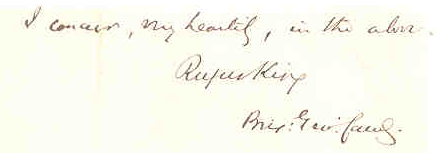 I concur, very heartily, in the above.
Rufus King
Brig: Gen: Comdg.